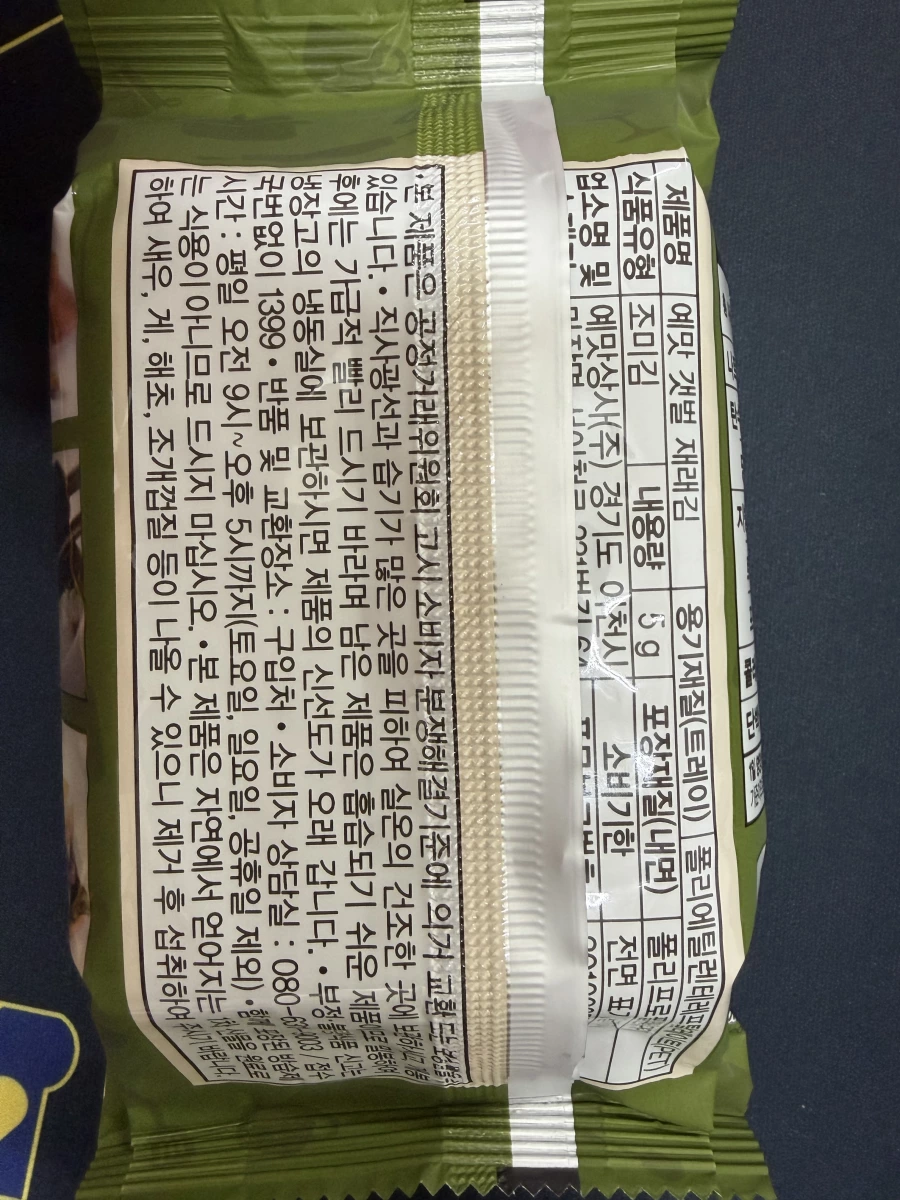 제품명 예맛 갯벌 재래김 용기재질(트레이) 폴리에틸렌테레프탈레이트(PET)
식품유형 조미김 내용량 5 g 포장재질(내면) 폴리프로
업소명 및 예맛상사(주) 경기도 이천시 소비기한 전면 표
•본 제품은 공정거래위원회 고시 소비자 분쟁해결기준에 의거 교환 또는 보상받을 수
있습니다. • 직사광선과 습기가 많은 곳을 피하여 실온의 건조한 곳에 보관하시고 개봉
후에는 가급적 빨리 드시기 바라며 남은 제품은 흡습되기 쉬운 제품이므로 밀봉하여
냉장고의 냉동실에 보관하시면 제품의 신선도가 오래 갑니다. • 부정·불량식품 신고는
국번없이 1399 • 반품 및 교환장소 : 구입처 • 소비자 상담실 : 080- / 접수
시간 : 평일 오전 9시~오후 5시까지(토요일, 일요일, 공휴일 제외) • 함께 포장된 방습제
는 식용이 아니므로 드시지 마십시오. •본 제품은 자연에서 얻어지는 원료로
하여 새우, 게, 해초, 조개껍질 등이 나올 수 있으니 제거 후 섭취하여 주시기 바랍니다.